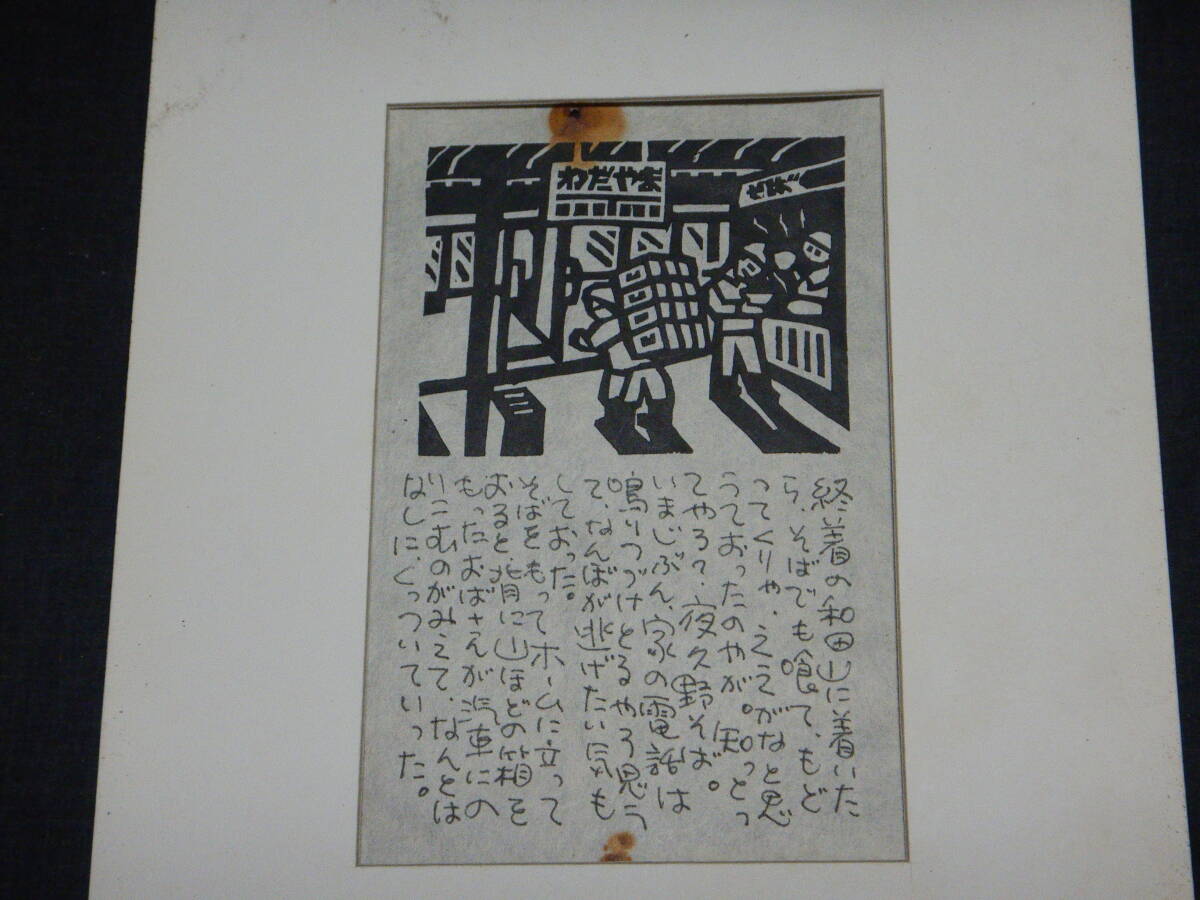 わだやま
終着の和田山に着いた
ら、そばでも喰て、もど
ってくりゃ、ええがなと思
うておったのやが。知っとっ
てやろ?、夜久野そば。
いまじぶん、家の電話は
鳴りつづけとるやろ思う
て、なんぼが逃げたい気も
しておった。
そばをもってホームに立って
おると、背に山ほどの箱を
もったおばさんが汽車にの
りこむのがみえて、なんとは
なしに、くっついていった。